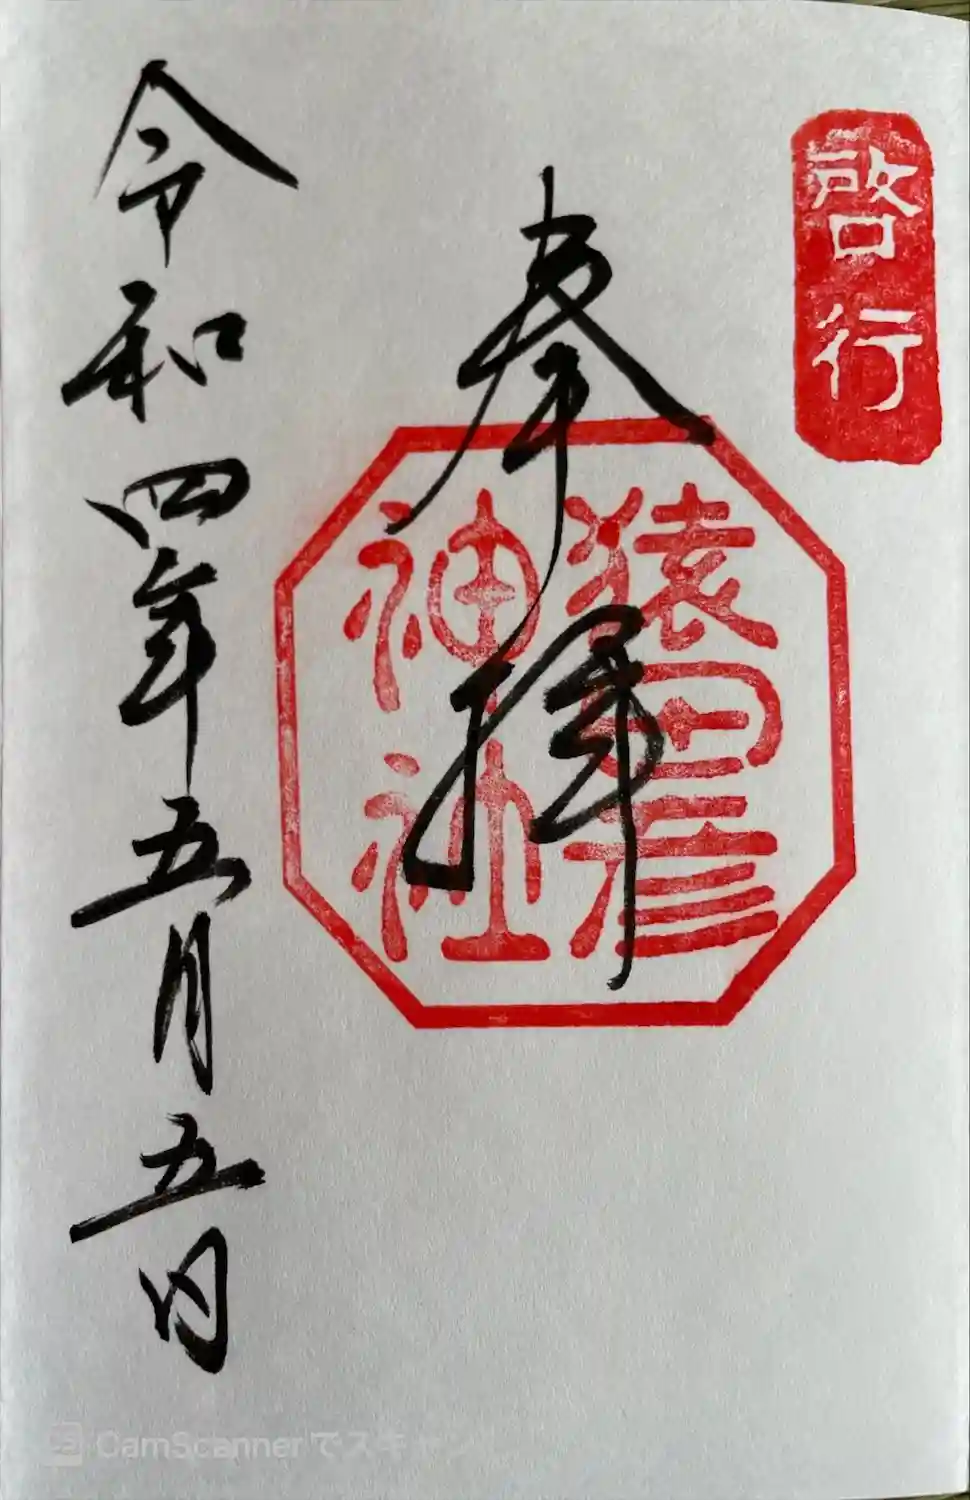 啓行
奉拝
猿田彦
神社
令和四年五月五日
CamScannerでスキャン